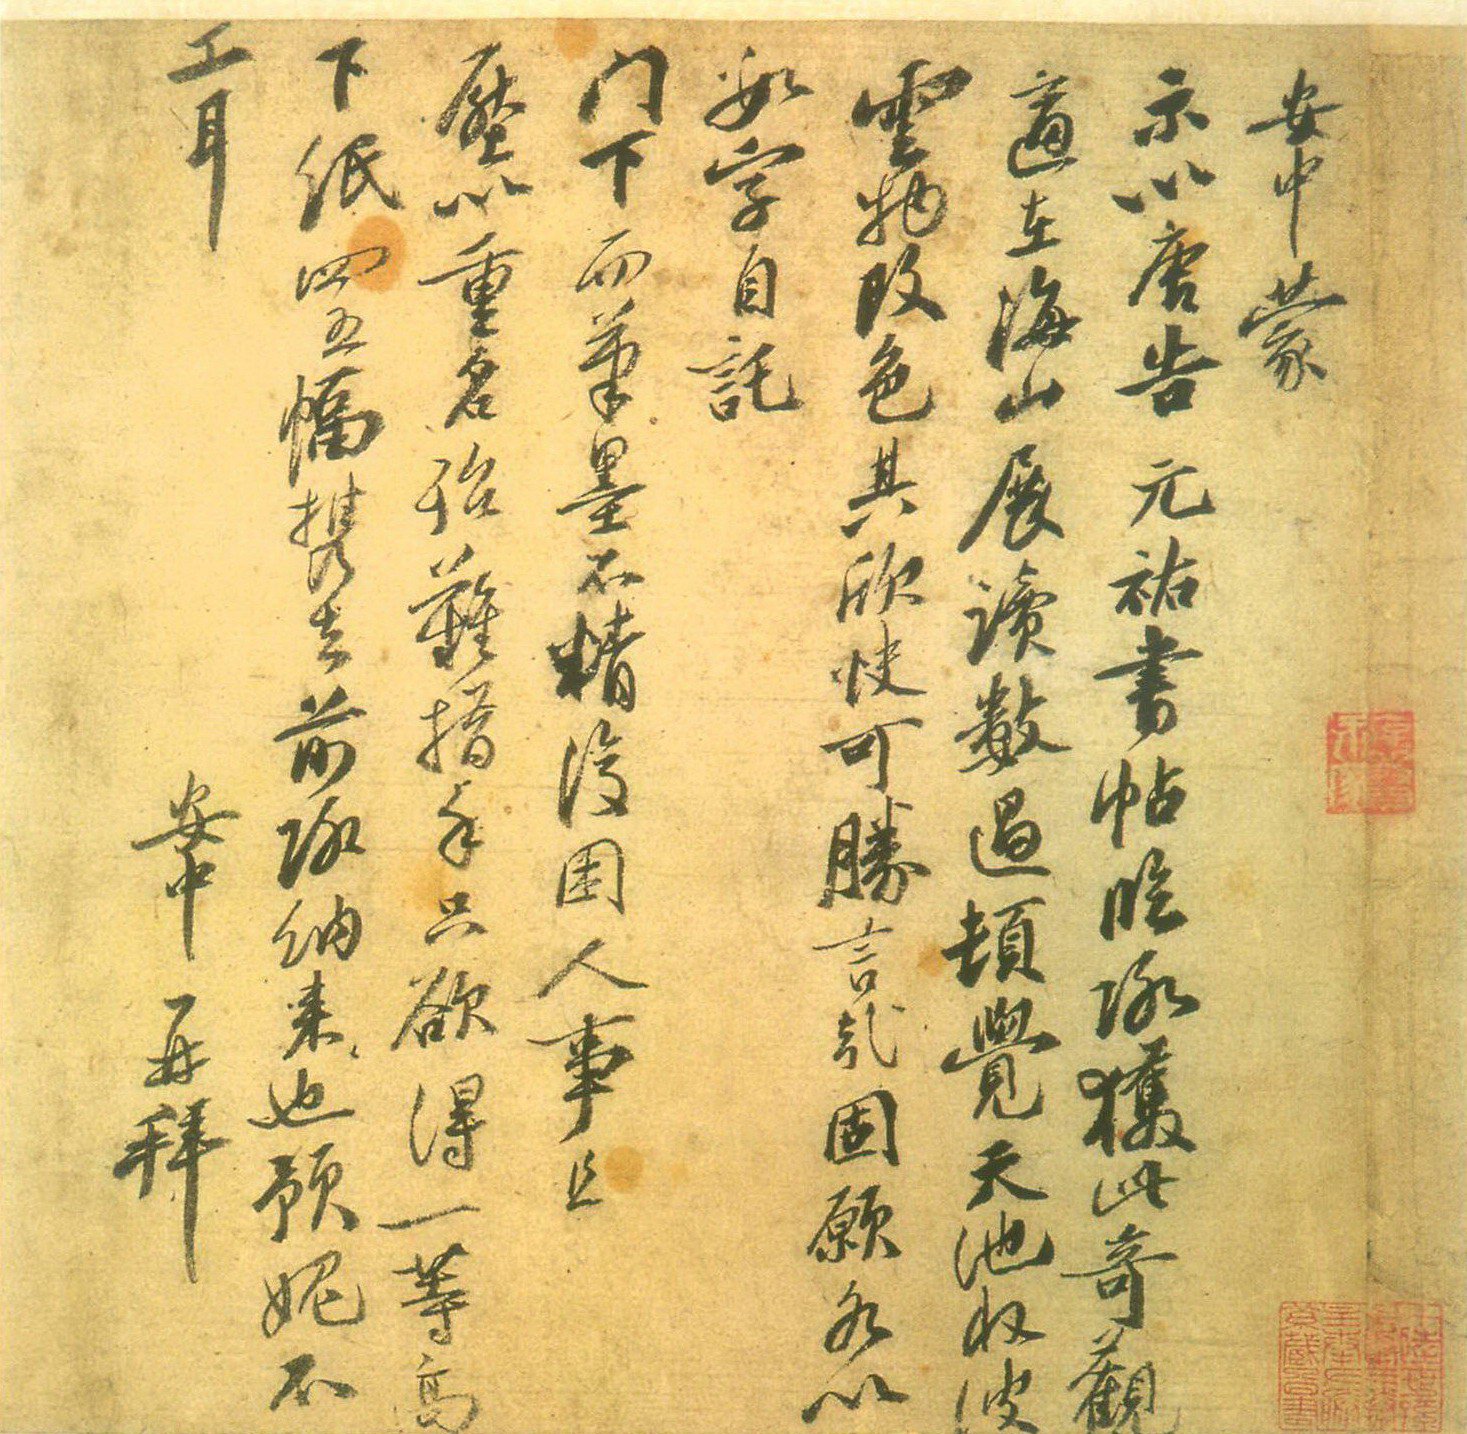 安中蒙
示以唐告 元祐書帖臨涂獲此奇觀
適在海山展讀數過頓覺天池收波
雲物改色其欣快可勝言哉固願以
數字自託
门下而筆墨不精復困人事且
壓以重名殆難措手只欲得一等高
下紙四五幅携去前涂納来也預媿不
工耳
安中再拜